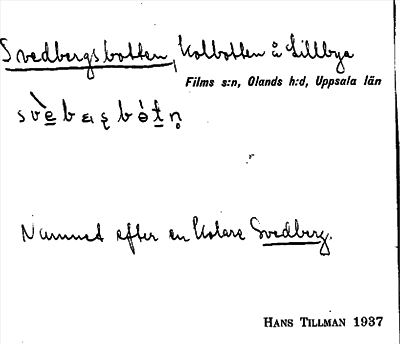 Svedbergsbotten, Kolbotten å Lillbyn
Films s:n, Olands h:d, Uppsala län
Namnet efter en kolare Svedberg.
HANS TILLMAN 1937